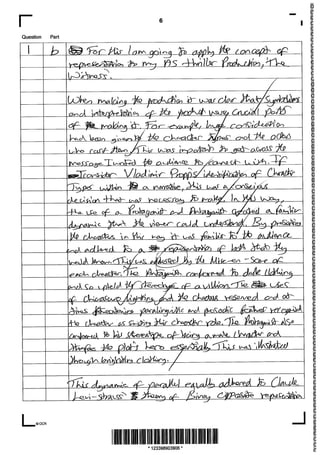 6
Question Part
1 b For this I am going to apply the concept of
representation to my AS thriller Production, 'The
Witness'.
When making the production it was clear that symbolism
and interpretation of the product were crucial parts
of making it. For example, huge consideration
had been given to the character types and the actors
who cast them. This was important to get across the
message I wanted the audience to connect with. If
I consider Vladimir Propps identification of Character
Types within a narrative, this was a conscious
decision that was necessary to make. In this way,
the use of a Protagonist and Antagonist created a familiar
dynamic that the viewer could understand. By presenting
the characters in this way it was familiar to the audience
and adhered to a representation of both that they
would know. This was addressed by the Mise-en-scene of
each character. The Antagonist conformed to dark clothing
and so upheld the stereotype of a villain. The uses
of chiaroscuro lighting and the characters reserved and at
times
the character as
conformed to his stereotype of being a male character and
therefore the plot's hero essentially. This was illustrated
through brighter clothing.
This dynamic of parallel equally adhered to Claude
Levi-Strauss' theory of Binary opposite representation